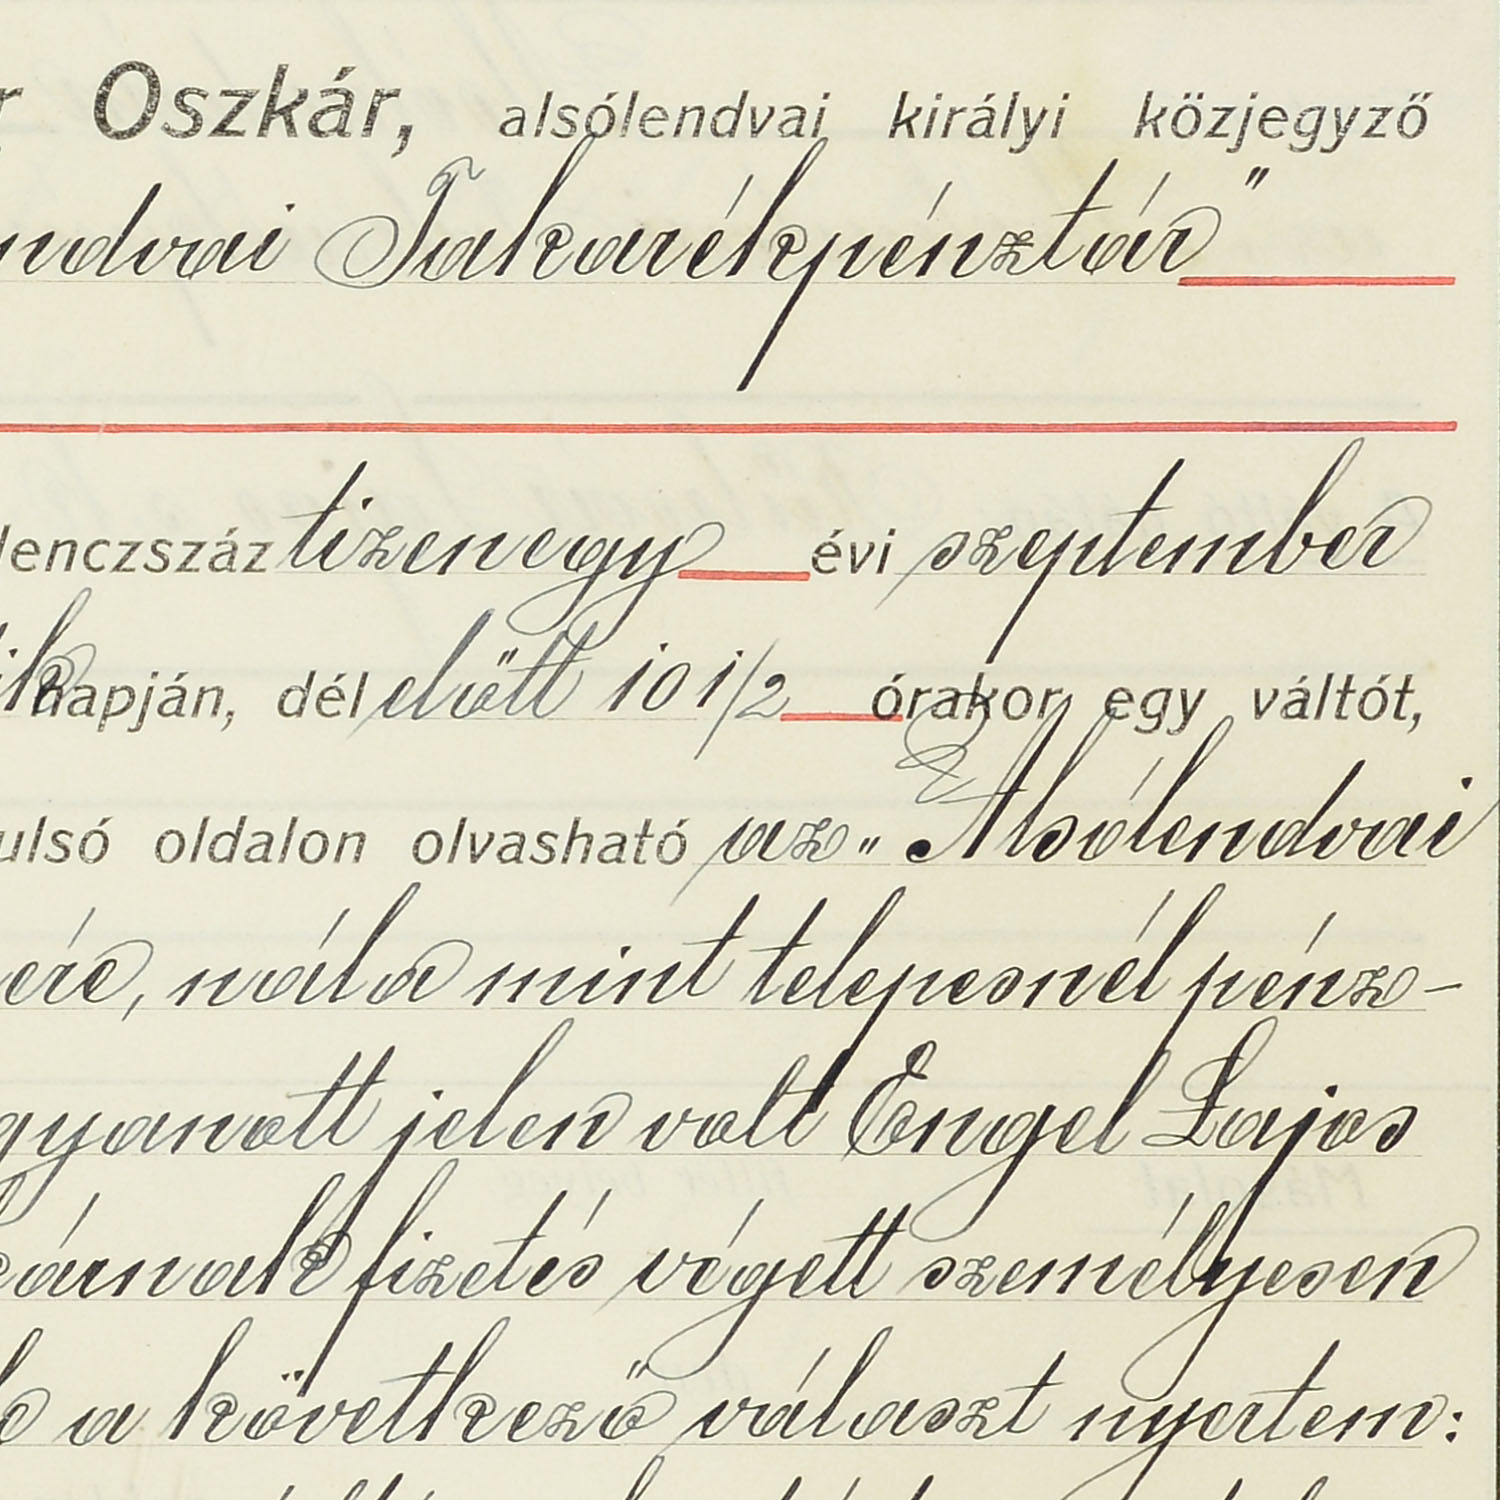 r Oszkár, alsólendvai királyi közjegyző
ndvai Takarékpénztár"
lenczszáz tizenegy évi szeptember
ik napján, dél előtt 10 1/2 órakor egy váltót,
ulsó oldalon olvasható az „Alsólendvai
ére, nála mint telepesnél pénz-
gyanott jelen volt Engel Lajos
tárnak fizetés végett személyesen
a következő választ nyertem: